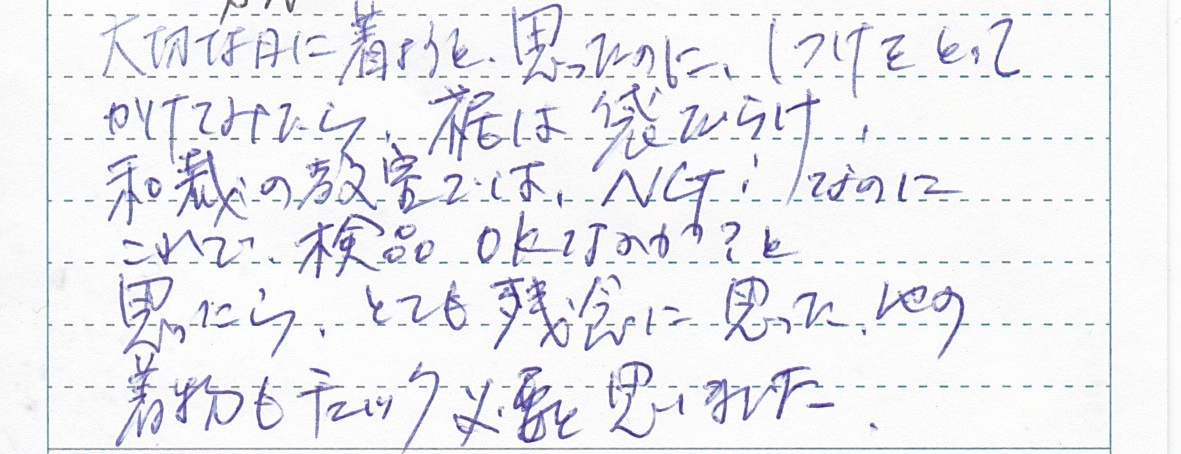 大切な日に着ようと、思ったのに、しつけをとって
かけてみたら、裾は袋びらけ、
和裁の教室では、NG!なのに
これで、検品OKなのか?と
思ったら、とても残念に思った、他の
着物もチェック必要と思いました。